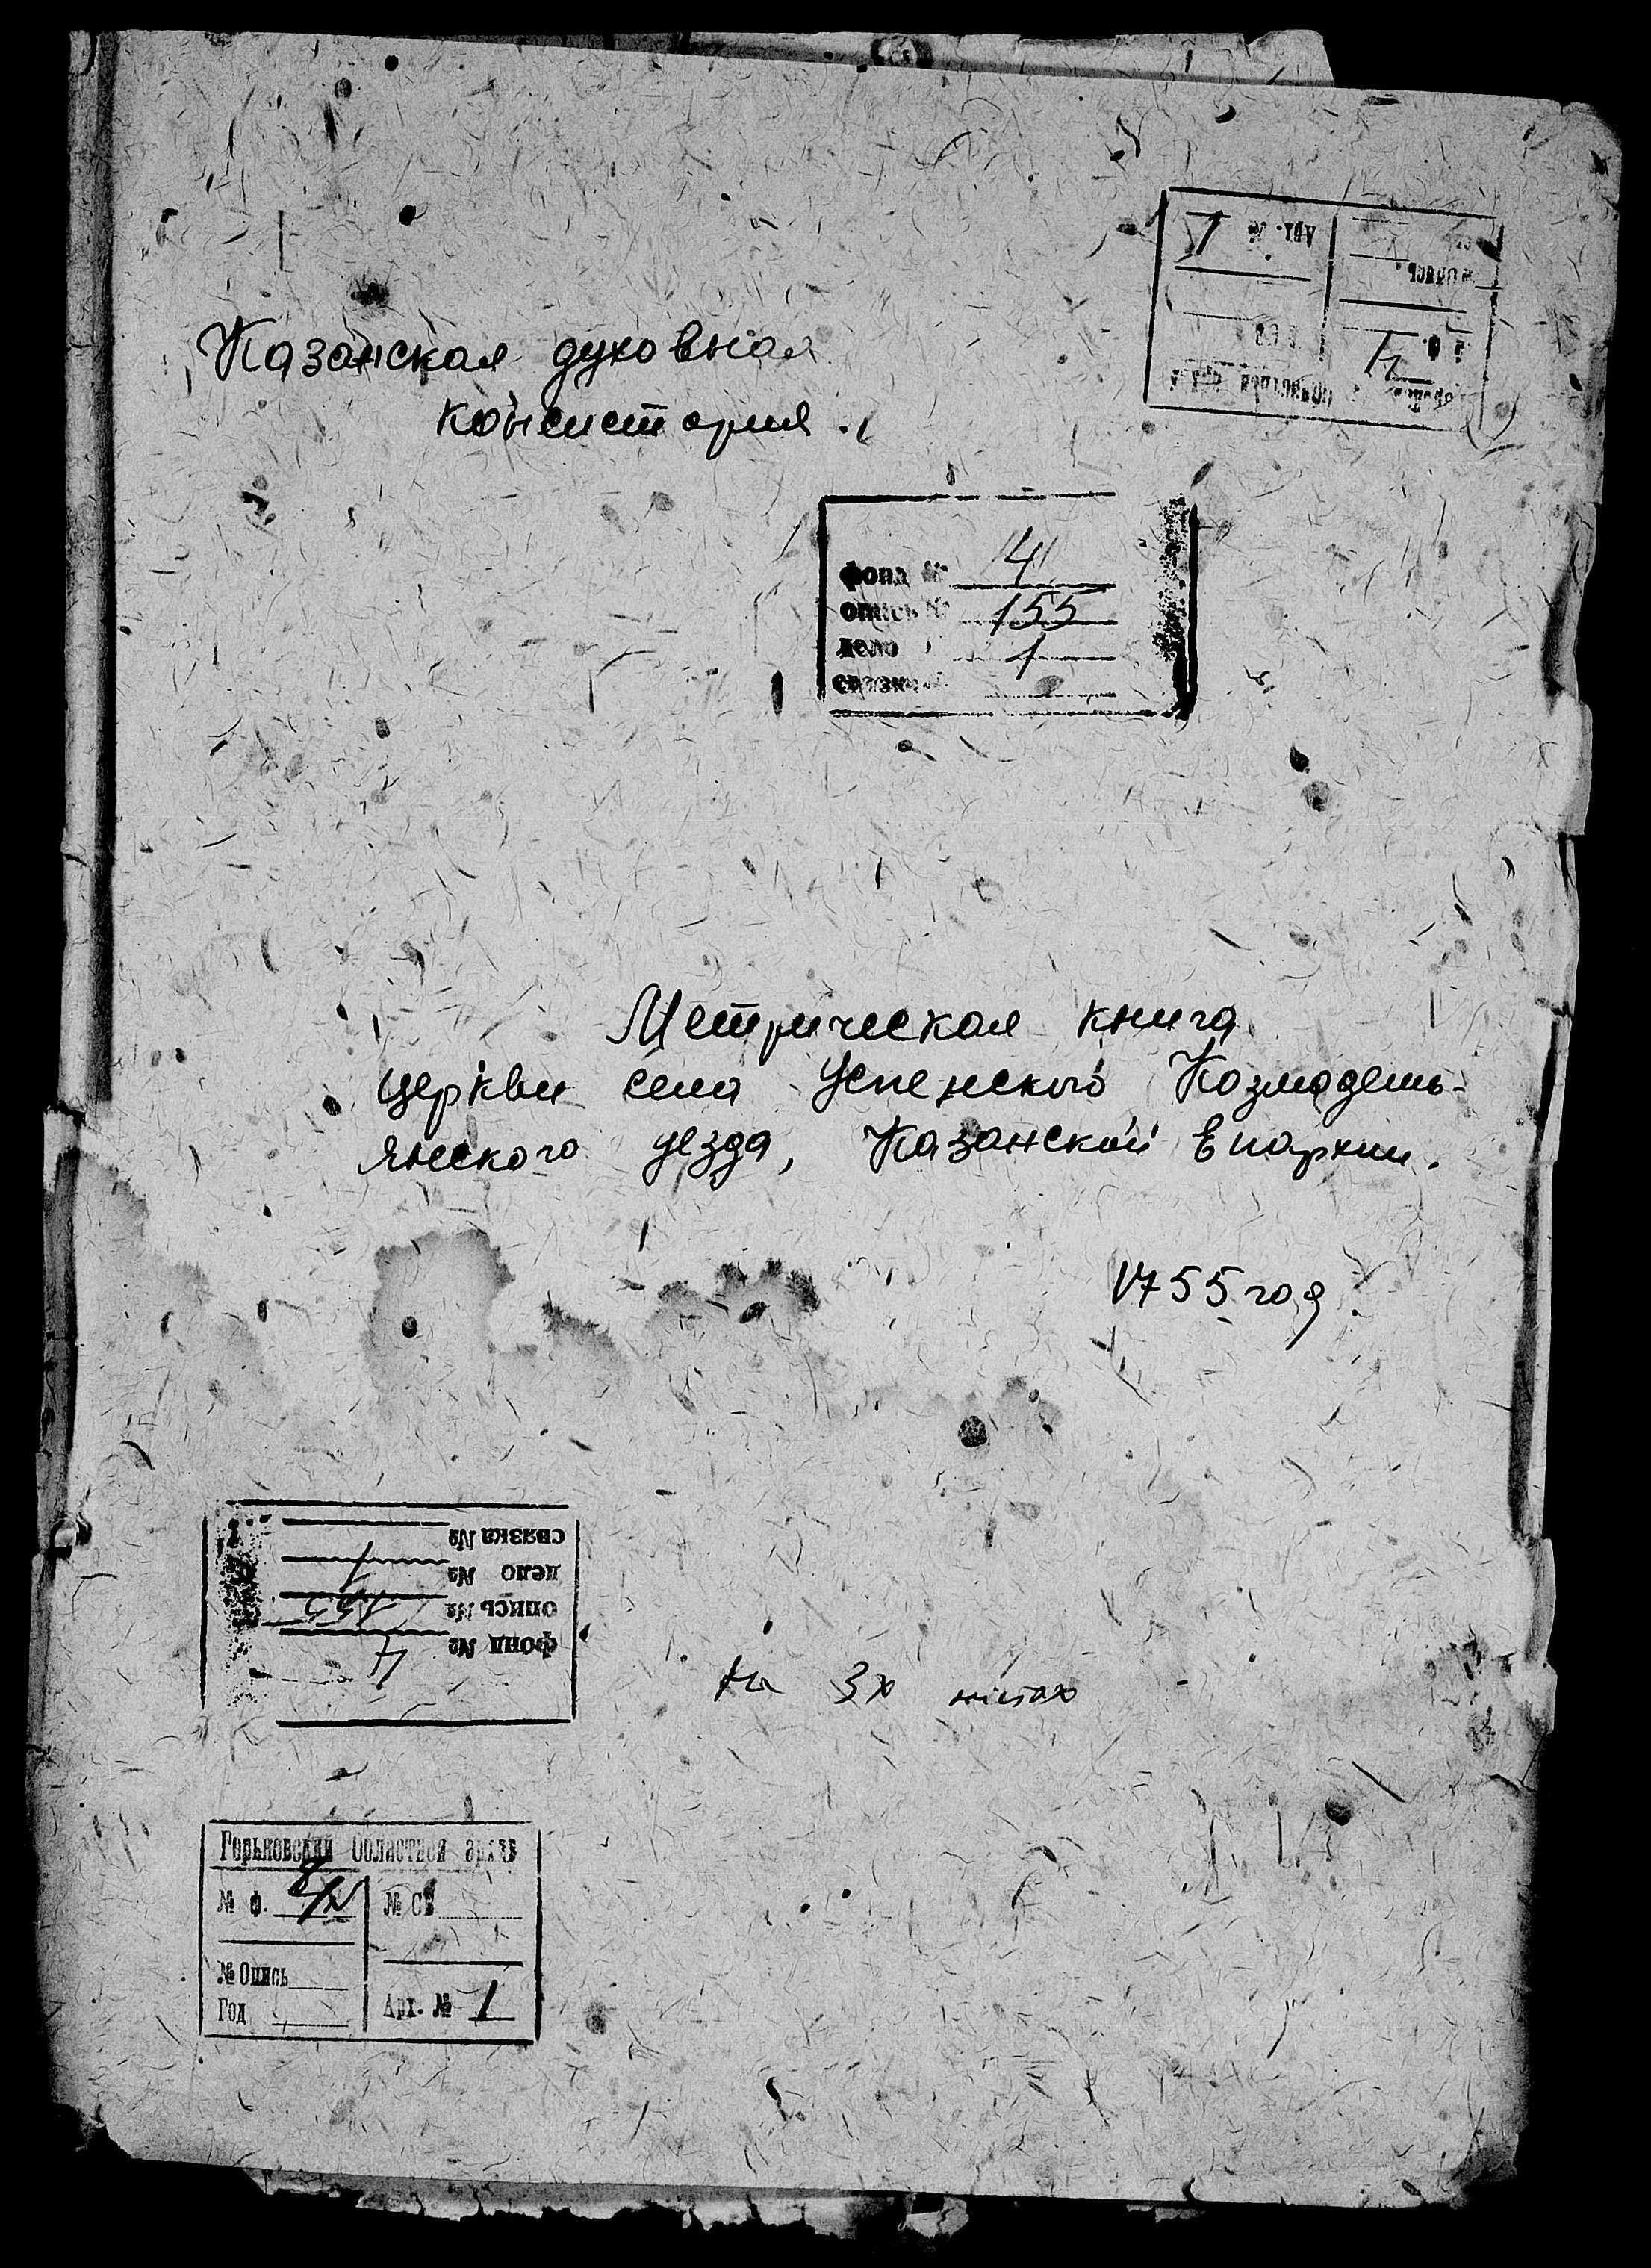 Арх. №
1
Опись
Казанская духовная
консистория.
фонд № 4
опись № 155
дело 1
связка
Метрическая книга
церкви села Успенского Козмодемь-
янского уезда, Казанской Епархии.
1755 год.
связка №
дело № 1
опись № 155
фонд № 4
на 3х листах
Горьковский Областной архив
№ ф.
№ св
№ Опись
Год
Арх. № 1